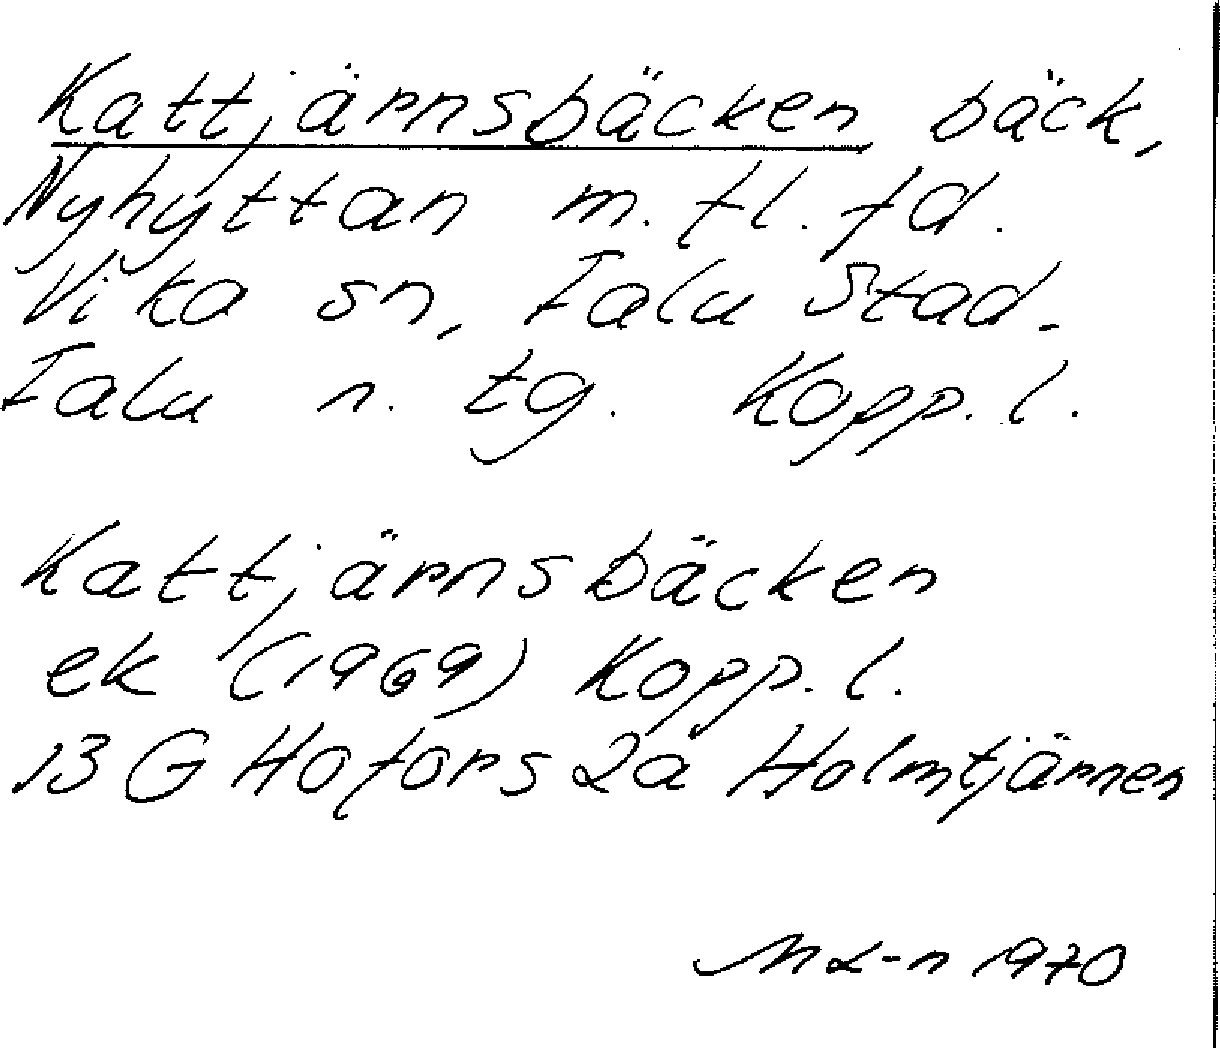 Kattjärnsbäcken bäck,
Nyhyttan m. fl. fd.
Vika sn, Falu Stad.
Falu n. tg. Kopp. l.
Kattjärnsbäcken
ek (1969) Kopp. l.
13 G Hofors 2a Holmtjärnen
1970